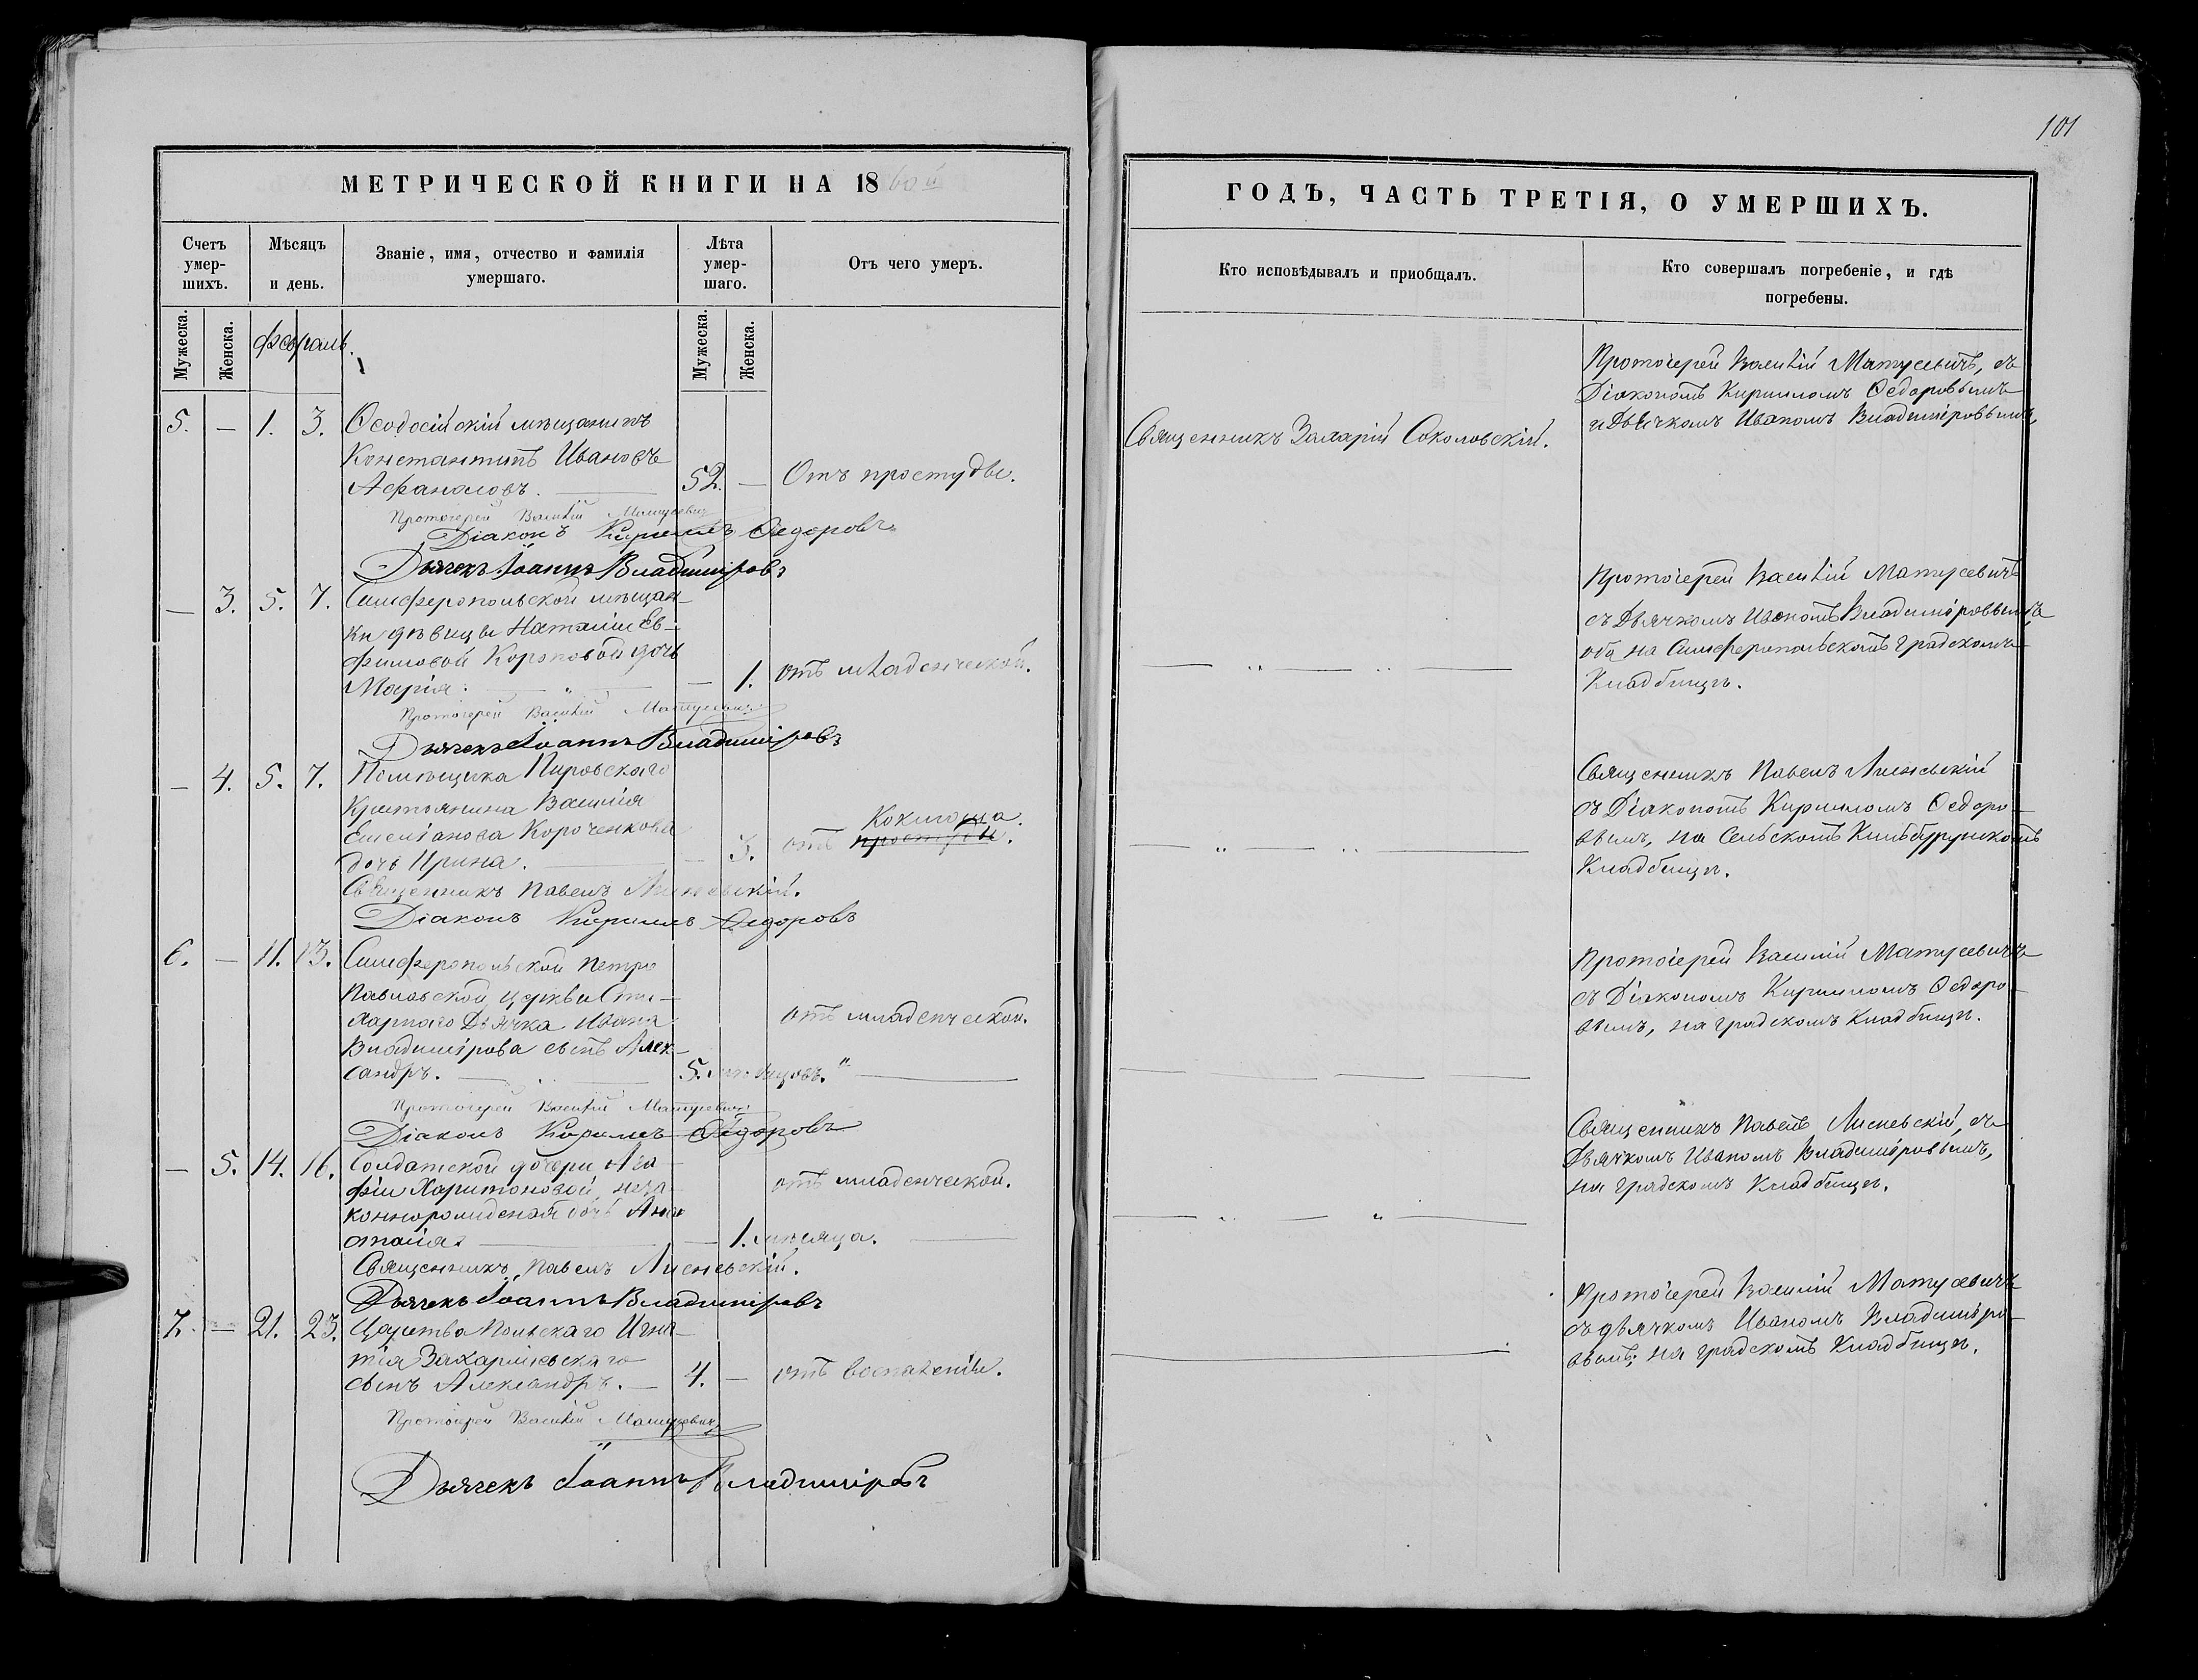 101
МЕТРИЧЕСКОЙ КНИГИ НА 1860й
Счетъ умер-шихъ.
Мѣсяцъ и день.
Званіе, имя, отчество и фамилія умершаго.
Лѣта умер-шаго.
Отъ чего умеръ.
Мужеска.
Женска.
Мужеска.
Женска.
Февраль.
5. — 1. 3. Ѳеодосійскій мѣщанинъ
Константинъ Ивановъ
Афанасовъ. 52. — Отъ простуды.
Протоіерей Василій Матусевич
Діаконъ Кириллъ Ѳедоровъ
Дьячекъ Іоаннъ Владиміровъ
— 3. 5. 7. Симферопольской мѣщан-
ки дѣвицы Наталіи Ев-
фимовой Короповой дочь
Марія. — 1. отъ младенческой.
Протоіерей Василій Матусевич
Дьячекъ Іоаннъ Владиміровъ
— 4. 5. 7. Помѣщика Пировскаго
Крестьянина Василія
Емеліанова Короченкова
Коклюша.
дочь Ирина. — 3. отъ простуды.
Священникъ Павелъ Лисневскій.
Діаконъ Кириллъ Ѳедоровъ
6. — 11. 13. Симферопольской Петро
Павловской церкви Сти-
харнаго Дьячка Ивана отъ младенческой.
Владимірова сынъ Алек-
сандръ. 5. мѣсяцовъ.
Протоіерей Василій Матусевич
Діаконъ Кириллъ Ѳедоровъ
— 5. 14. 16. Солдатской дочери Ага-
фіи Харитоновой, неза- отъ младенческой.
коннорожденная дочь Ана-
стасія — 1. мѣсяца.
Священникъ Павелъ Лисневскій.
Дьячекъ Іоаннъ Владиміровъ
7. — 21. 23. Царства Польскаго Игна-
тія Захаршевскаго
сынъ Александръ. — 4. — отъ воспаленія.
Протоіерей Василій Матусевич
Дьячекъ Іоаннъ Владиміровъ
ГОДЪ, ЧАСТЬ ТРЕТІЯ, О УМЕРШИХЪ.
Кто исповѣдывалъ и пріобщалъ.
Кто совершалъ погребеніе, и гдѣ
погребены.
Протоіерей Василій Матусевичъ, съ
Діакономъ Кирилломъ Ѳедоровымъ
и Дьячкомъ Иваномъ Владиміровымъ,
Священникъ Захарій Соколовскій.
Протоіерей Василій Матусевичъ
съ Дьячкомъ Иваномъ Владиміровымъ,
оба на Симферопольскомъ градскомъ
Кладбищѣ.
Священникъ Павелъ Лисневскій
съ Діакономъ Кирилломъ Ѳедоро-
вымъ, на Сельскомъ Кильбурунскомъ
Кладбищѣ.
Протоіерей Василій Матусевичъ
съ Діакономъ Кирилломъ Ѳедоро-
вымъ, на градскомъ Кладбищѣ.
Священникъ Павелъ Лисневскій, съ
Дьячкомъ Иваномъ Владиміровымъ,
на градскомъ Кладбищѣ.
Протоіерей Василій Матусевичъ
съ дьячкомъ Иваномъ Владиміро-
вымъ; на градскомъ Кладбищѣ.